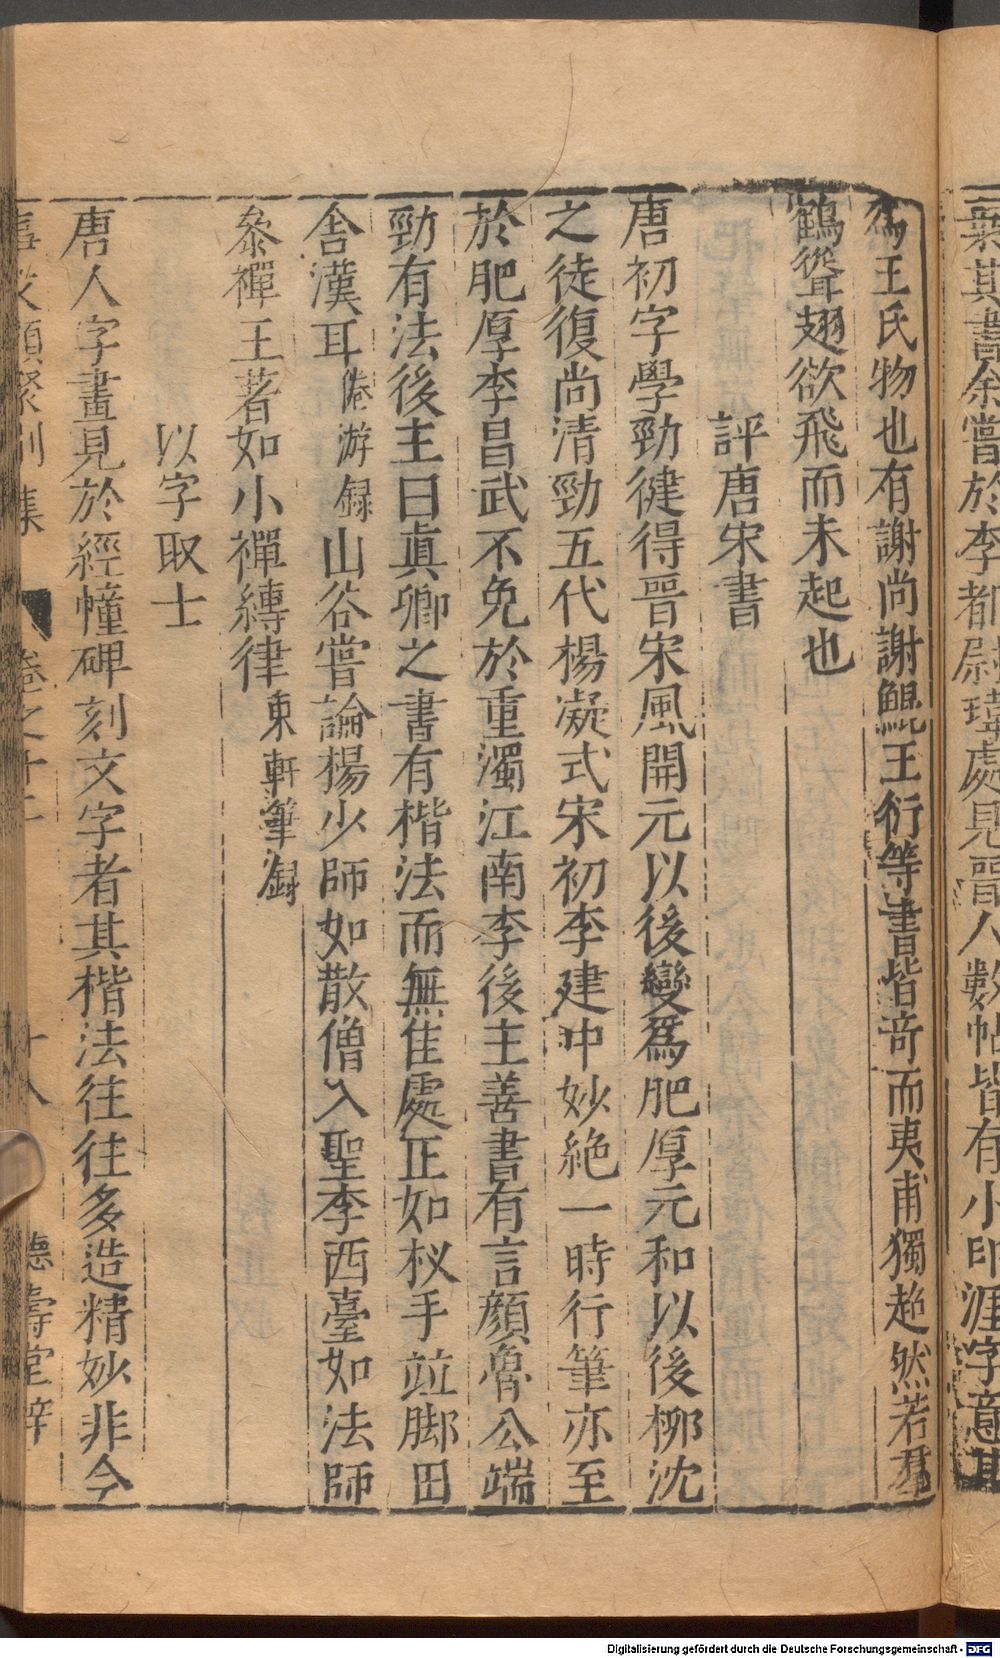 襲其書余嘗於李都尉瑋處見晉人數帖皆有小印涯字意其
爲王氏物也有謝尚謝鯤王衍等書皆竒而夷甫獨超然若羣
鶴聳翅欲飛而未起也
評唐宋書
唐初字學勁徤得晋宋風開元以後變爲肥厚元和以後柳沈
之徒復尚清勁五代楊凝式宋初李建中妙絶一時行筆亦至
於肥厚李昌武不免於重濁江南李後主善書有言顔魯公端
勁有法後主曰眞卿之書有楷法而無隹處正如杈手竝脚田
舎漢耳 游録山谷嘗論楊少師如散僧入聖李西臺如法師
叅禪王著如小禪縛律東軒筆録
以字取士
唐人字畫見於經幢碑刻文字者其楷法往往多造精妙非今
事文類聚別集 卷之十二 十八 德壽堂梓
Digitalisierung gefördert durch die Deutsche Forschungsgemeinschaft - DFG